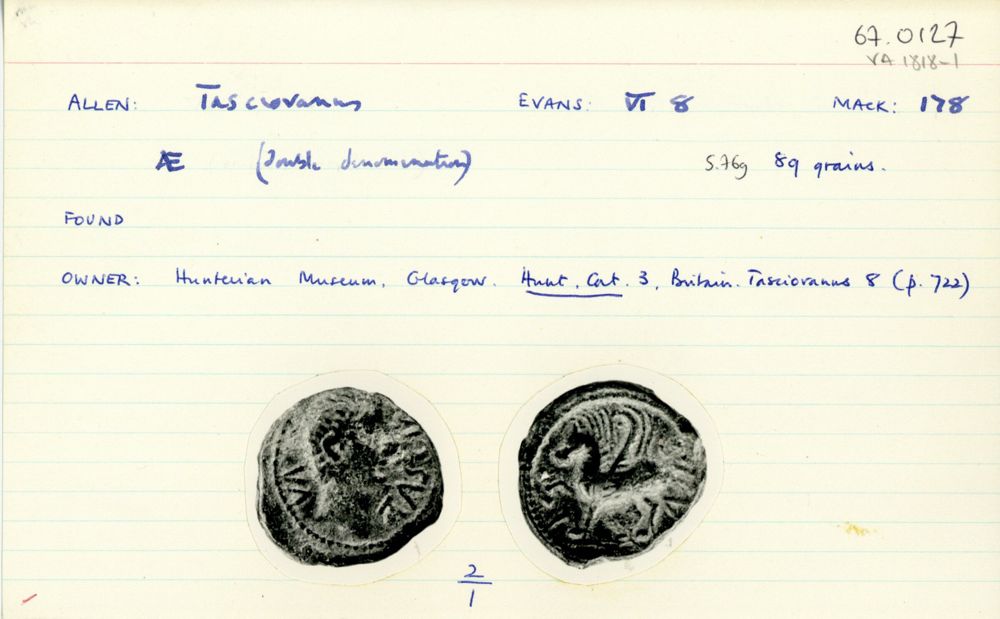 67.0127
VA 1818-1
ALLEN: Tasciovanus EVANS: VI 8 MACK: 178
Æ (Double denomination) 5.76g 89 grains.
FOUND
OWNER: Hunterian Museum, Glasgow. Hunt. Cat. 3, Britain. Tasciovanus 8 (p. 722)
2
1